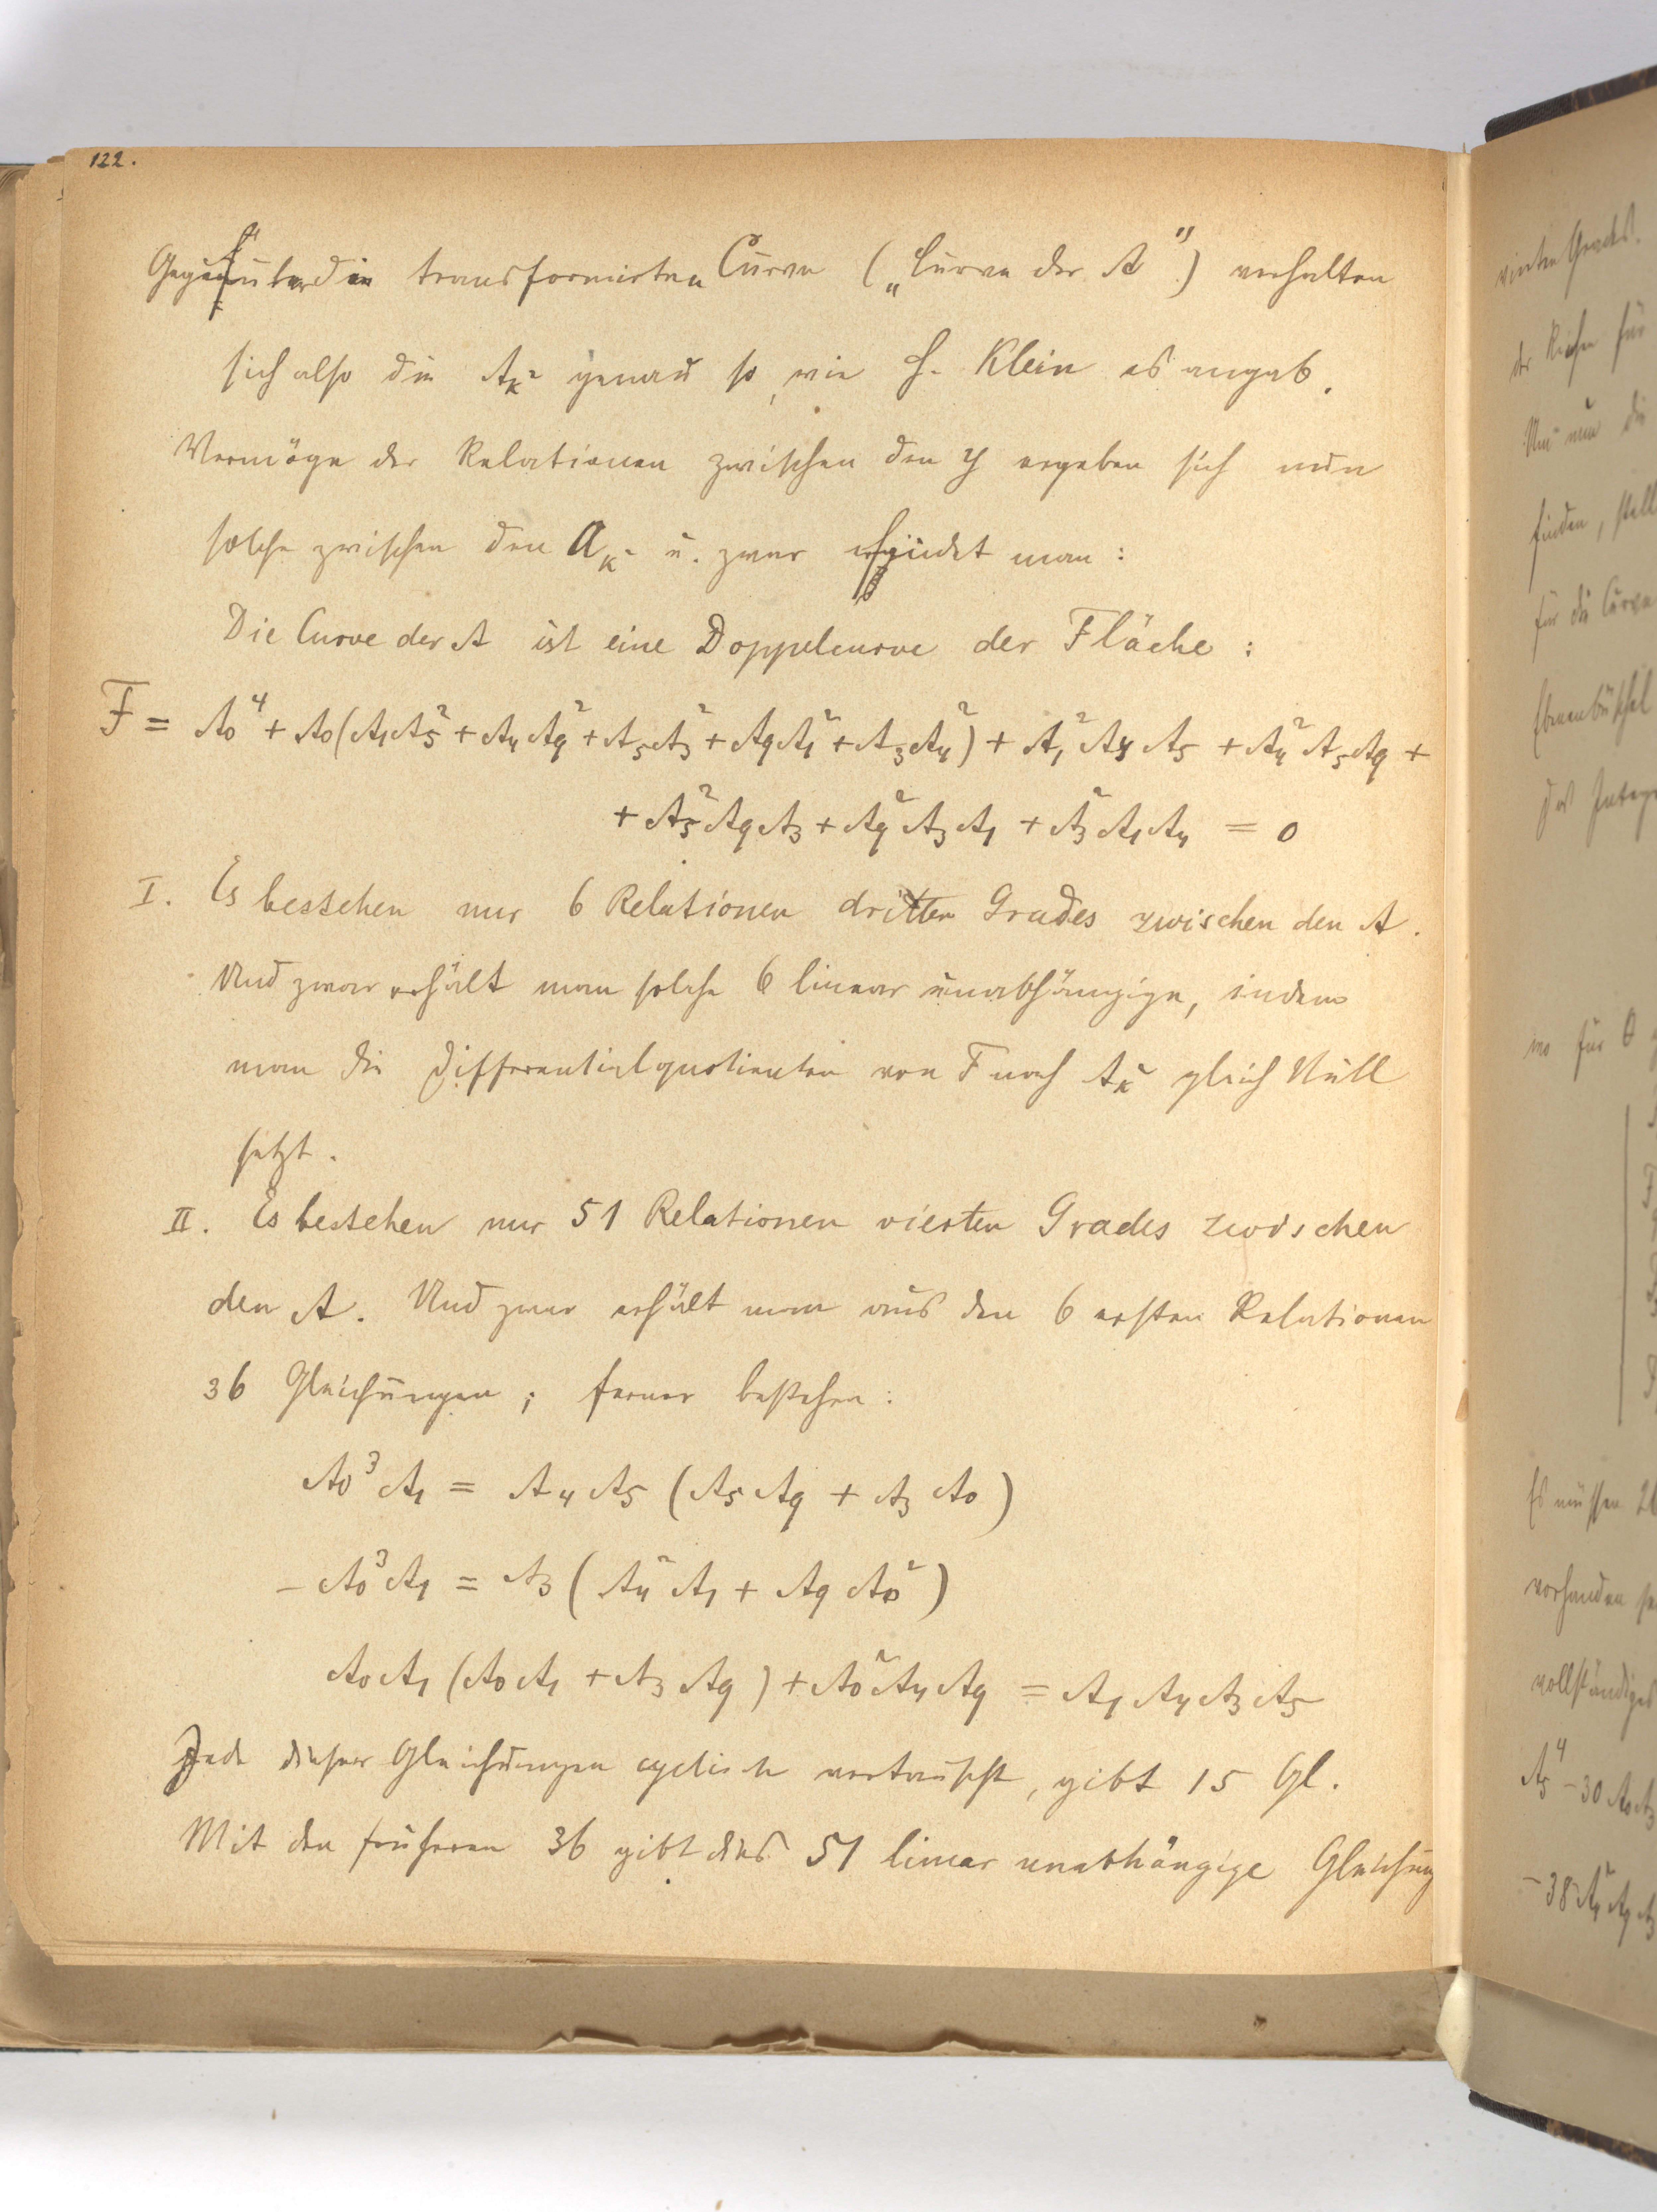 122.
Gegenüber der transformirten Curve („Curve der A“) verhalten
sich also die A_κ² genau so, wie H. Klein es angab.
Vermöge der Relationen zwischen den y ergeben sich nun
solche zwischen den A_κ² u. zwar findet man:
Die Curve der A ist eine Doppelcurve der Fläche:
F = A₀⁴ + A₀(A₁A₅² + A₄A₉² + A₅A₃² + A₉A₁² + A₃A₄²) + A₁²A₄A₅ + A₄²A₅A₉ +
+ A₅²A₉A₃ + A₉²A₃A₁ + A₃²A₁A₄ = 0
I. Es bestehen nur 6 Relationen dritten Grades zwischen den A.
Und zwar erhält man solche 6 linear unabhängige, indem
man die Differentialquotienten von F nach A_κ² gleich Null
setzt.
II. Es bestehen nur 51 Relationen vierten Grades zwischen
den A. Und zwar erhält man aus den 6 ersten Relationen
36 Gleichungen; ferner bestehen:
A₀³A₁ = A₄A₅(A₅A₉ + A₃A₀)
– A₀³A₁ = A₃(A₄²A₁ + A₉A₀²)
A₀A₁(A₀A₁ + A₃A₉) + A₀²A₄A₉ = A₁A₄A₃A₅
Jede dieser Gleichungen cyclisch vertauscht, gibt 15 Gl.
Mit den früheren 36 gibt dies 51 linear unabhängige Gleichung
vierten Grades.
der Reihe für
Um nun die
finden, stell
für die Curve
Ebenenbüschel
das Integr
wo für θ
Es müssen 2
vorhanden se
vollständiges
A₅⁴ – 30 A₀A₃
– 38 A₁²A₉A₃